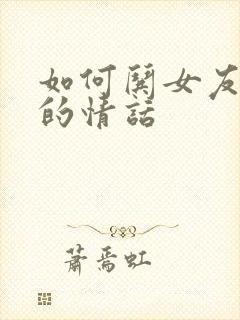 如何鬨女友
的情話
蕭焉虹